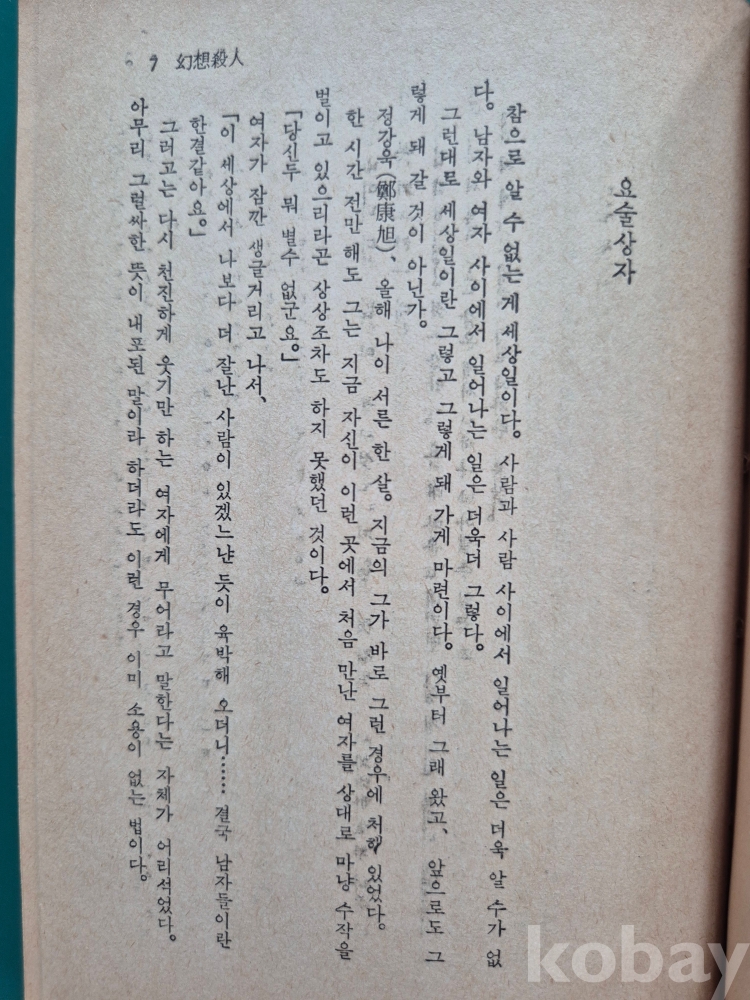 9 幻想殺人
요술상자
참으로 알 수 없는 게 세상일이다. 사람과 사람 사이에서 일어나는 일은 더욱 알 수가 없
다. 남자와 여자 사이에서 일어나는 일은 더욱더 그렇다.
그런대로 세상일이란 그렇고 그렇게 돼 가게 마련이다. 옛부터 그래 왔고、 앞으로도 그
렇게 돼 갈 것이 아닌가.
정강욱(鄭康旭)、 올해 나이 서른 한 살. 지금의 그가 바로 그런 경우에 처해 있었다.
한 시간 전만 해도 그는 지금 자신이 이런 곳에서 처음 만난 여자를 상대로 마냥 수작을
벌이고 있으리라곤 상상조차도 하지 못했던 것이다.
「당신두 뭐 별수 없군요.」
여자가 잠깐 생글거리고 나서、
「이 세상에서 나보다 더 잘난 사람이 있겠느냔 듯이 육박해 오더니…… 결국 남자들이란
한결같아요.」
그러고는 다시 천진하게 웃기만 하는 여자에게 무어라고 말한다는 자체가 어리석었다.
아무리 그럴싸한 뜻이 내포된 말이라 하더라도 이런 경우 이미 소용이 없는 법이다.
kobay